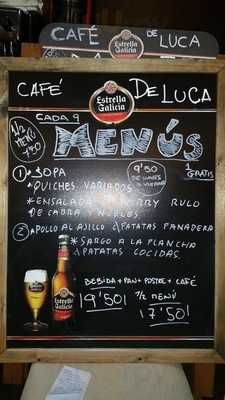 CAFÉ Estrella Galicia DE LUCA
CAFÉ Estrella Galicia DE LUCA
CADA 9
MENÚS
1 GRATIS
1/2 MENÚ 7'50
① * SOPA
* QUICHES VARIADOS
9'50 DE LUNES A VIERNES
* ENSALADA CHERRY RULO
DE CABRA Y NUECES
② * POLLO AL AJILLO c/ PATATAS PANADERA
* SARGO A LA PLANCHA
c/ PATATAS COCIDAS.
BEBIDA + PAN + POSTRE + CAFÉ
9'50 1/2 MENÚ
7'50
Estrella Galicia